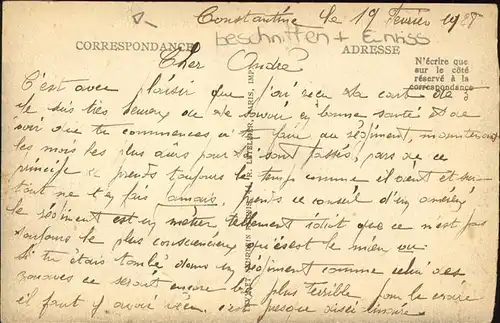 Constantine le 19 Février 192
beschnitten + Einriss
CORRESPONDANCE
ADRESSE
N'écrire que
sur le côté
réservé à la
correspondance
Cher André
C'est avec plaisir que j'ai reçu ta carte et
je suis très heureux de te savoir en bonne santé et de
voir que tu commences à te faire au régiment, maintenant
les mois les plus durs pour toi sont passés, pars de ce
principe prends toujours le temps comme il vient et sur-
tout ne t'en fais jamais, prends ce conseil d'un
le régiment est un métier tellement idiot que ce n'est pas
toujours le plus consciencieux qui est le mieux vu
Si tu étais tombé dans un régiment comme celui des
zouaves ce serait encore bien plus terrible, pour le croire
il faut y avoir vécu c'est presque disciplinaire.